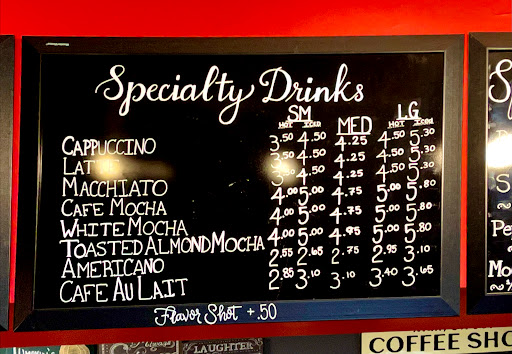 Specialty Drinks
SM LG
HOT ICED MED HOT ICED
CAPPUCCINO 3.50 4.50 4.25 4.50 5.30
LATTE 3.50 4.50 4.25 4.50 5.30
MACCHIATO 3.50 4.50 4.25 4.50 5.30
CAFE MOCHA 4.00 5.00 4.75 5.00 5.80
WHITE MOCHA 4.00 5.00 4.75 5.00 5.80
TOASTED ALMOND MOCHA 4.00 5.00 4.95 5.00 5.80
AMERICANO 2.55 2.65 2.75 2.95 3.10
CAFE AU LAIT 2.85 3.10 3.10 3.40 3.65
Flavor Shot +.50
LAUGHTER
COFFEE SHO